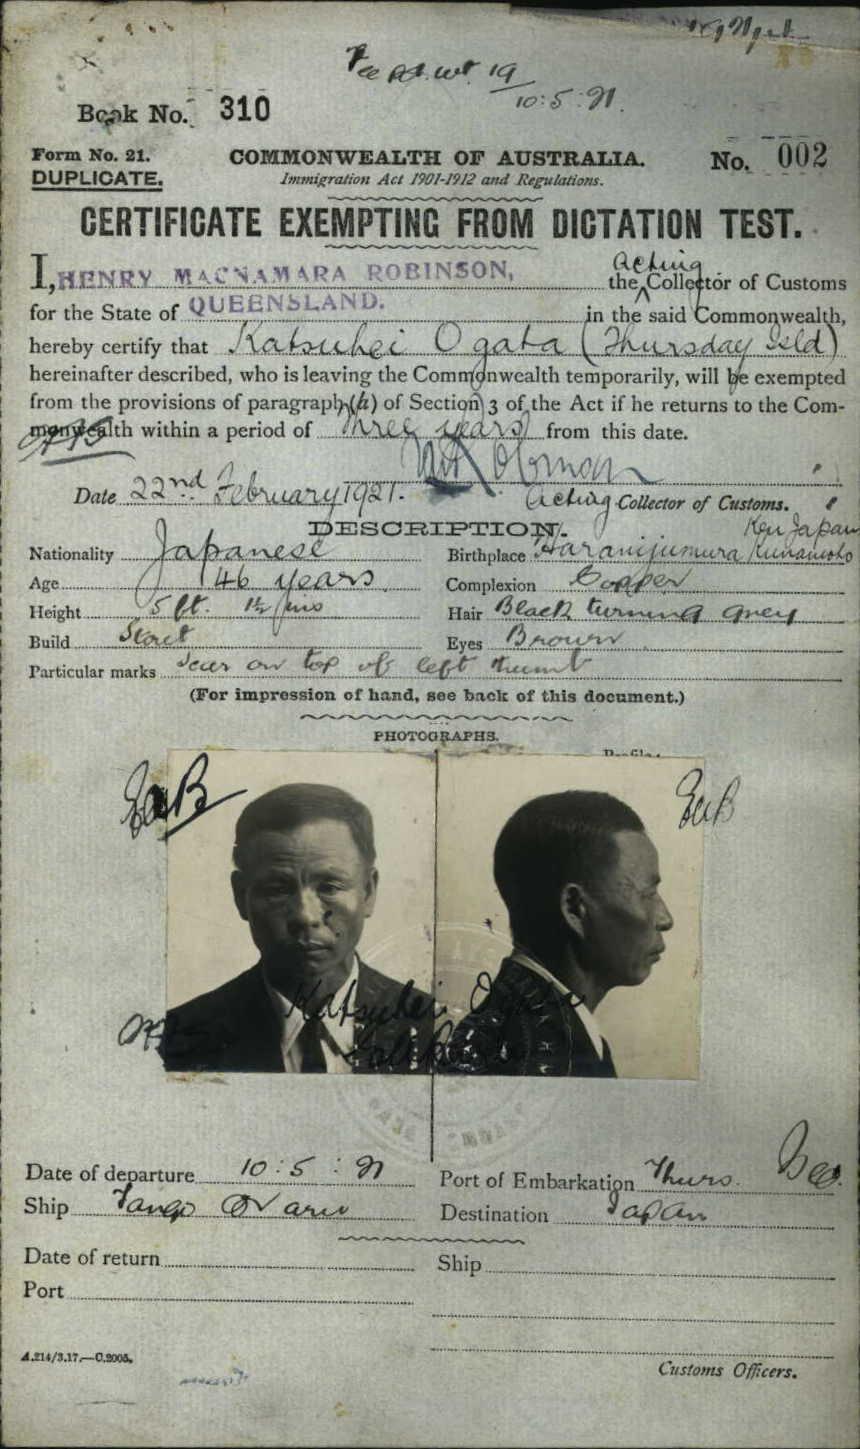 10:5:21.
Book No. 310
Form No. 21.
DUPLICATE.
COMMONWEALTH OF AUSTRALIA.
Immigration Act 1901-1912 and Regulations.
No. 002
CERTIFICATE EXEMPTING FROM DICTATION TEST.
I, HENRY MACNAMARA ROBINSON, the Acting Collector of Customs
for the State of QUEENSLAND. in the said Commonwealth,
hereby certify that Katsuhei Ogata (Thursday Isld)
hereinafter described, who is leaving the Commonwealth temporarily, will be exempted
from the provisions of paragraph (h) of Section 3 of the Act if he returns to the Com-
monwealth within a period of three years from this date.
Date 22nd February 1921.
Acting Collector of Customs.
DESCRIPTION.
Nationality Japanese
Birthplace Kumamoto Ken Japan
Age 46 years
Complexion Copper
Height 5 ft. 1½ ins
Hair Black turning grey
Build Stout
Eyes Brown
Particular marks Scar on top of left thumb
(For impression of hand, see back of this document.)
PHOTOGRAPHS.
Profile
Katsuhei Ogata
Date of departure 10:5:21
Port of Embarkation Thurs.
Ship Tango Maru
Destination Japan
Date of return
Ship
Port
A.214/3.17.—C.2005.
Customs Officers.